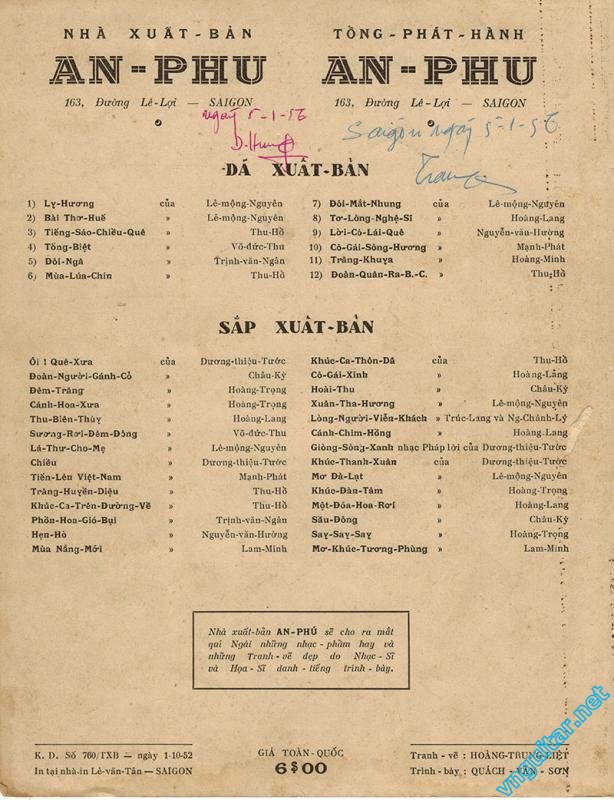 NHÀ XUẤT-BẢN
AN-PHU
163, Đường Lê-Lợi — SAIGON
TỔNG-PHÁT-HÀNH
AN-PHU
163, Đường Lê-Lợi — SAIGON
ngày 5-1-56
D. Hung
Saigon ngày 5-1-56
ĐÁ XUẤT-BẢN
1) Ly-Hương của Lê-mộng-Nguyên
2) Bài Thơ-Huế » Lê-mộng-Nguyên
3) Tiếng-Sáo-Chiều-Quê » Thu-Hồ
4) Tống-Biệt » Võ-đức-Thu
5) Đôi-Ngả » Trịnh-văn-Ngân
6) Mùa-Lúa-Chín » Thu-Hồ
7) Đôi-Mắt-Nhung của Lê-mộng-Nguyên
8) Tơ-Lòng-Nghệ-Sĩ » Hoàng-Lang
9) Lời-Cô-Lái-Quê » Nguyễn-văn-Hường
10) Cô-Gái-Sông-Hương » Mạnh-Phát
11) Trăng-Khuya » Hoàng-Minh
12) Đoàn-Quân-Ra-B.-C. » Thu-Hồ
SẮP XUẤT-BẢN
Ôi ! Quê-Xưa của Dương-thiệu-Tước
Đoàn-Người-Gánh-Cỏ » Châu-Kỳ
Đêm-Trăng » Hoàng-Trọng
Cánh-Hoa-Xưa » Hoàng-Trọng
Thu-Biên-Thùy » Hoàng-Lang
Sương-Rơi-Đêm-Đông » Võ-đức-Thu
Lá-Thư-Cho-Mẹ » Lê-mộng-Nguyên
Chiều » Dương-thiệu-Tước
Tiến-Lên Việt-Nam » Mạnh-Phát
Trăng-Huyền-Diệu » Thu-Hồ
Khúc-Ca-Trên-Đường-Về » Thu-Hồ
Phồn-Hoa-Gió-Bụi » Trịnh-văn-Ngân
Hẹn-Hò » Nguyễn-văn-Hường
Mùa Nắng-Mới » Lam-Minh
Khúc-Ca-Thôn-Dã của Thu-Hồ
Cô-Gái-Xinh » Hoàng-Lang
Hoài-Thu » Châu-Kỳ
Xuân-Tha-Hương » Lê-mộng-Nguyên
Lòng-Người-Viễn-Khách » Trúc-Lang và Ng-Chánh-Lý
Cánh-Chim-Hồng » Hoàng-Lang
Giòng-Sông-Xanh nhạc Pháp lời của Dương-thiệu-Tước
Khúc-Thanh-Xuân của Dương-thiệu-Tước
Mơ Đà-Lạt » Lê-mộng-Nguyên
Khúc-Đàn-Tâm » Hoàng-Trọng
Một-Đóa-Hoa-Rơi » Hoàng-Lang
Sầu-Đông » Châu-Kỳ
Say-Say-Say » Hoàng-Trọng
Mơ-Khúc-Tương-Phùng » Lam-Minh
Nhà xuất-bản AN-PHÚ sẽ cho ra mắt
quí Ngài những nhạc-phẩm hay và
những Tranh-vẽ đẹp do Nhạc-Sĩ
và Họa-Sĩ danh-tiếng trình-bày.
K. D. Số 760/TXB — ngày 1-10-52
In tại nhà-in Lê-văn-Tân — SAIGON
GIÁ TOÀN-QUỐC
6$00
Tranh-vẽ : HOÀNG-TRUNG-LIỆT
Trình-bày : QUÁCH-VĂN-SƠN
vnguitar.net